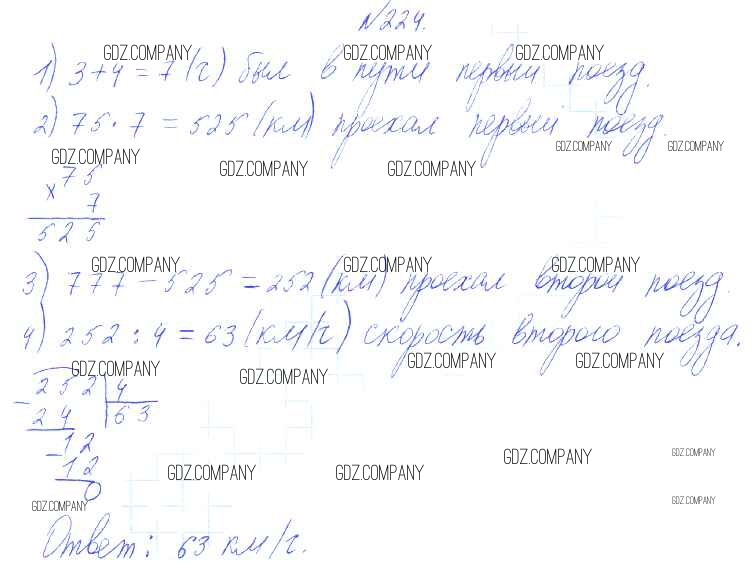 №224.
GDZ.COMPANY GDZ.COMPANY GDZ.COMPANY
1) 3+4=7(ч) был в пути первый поезд.
2) 75·7=525(км) проехал первый поезд.
GDZ.COMPANY GDZ.COMPANY
GDZ.COMPANY GDZ.COMPANY GDZ.COMPANY
75
× 7
525
GDZ.COMPANY GDZ.COMPANY GDZ.COMPANY
3) 777-525=252(км) проехал второй поезд.
4) 252:4=63(км/ч) скорость второго поезда.
GDZ.COMPANY GDZ.COMPANY GDZ.COMPANY GDZ.COMPANY
-252 4
24 63
-12
GDZ.COMPANY GDZ.COMPANY
12
GDZ.COMPANY GDZ.COMPANY
0
GDZ.COMPANY
GDZ.COMPANY
Ответ: 63 км/ч.